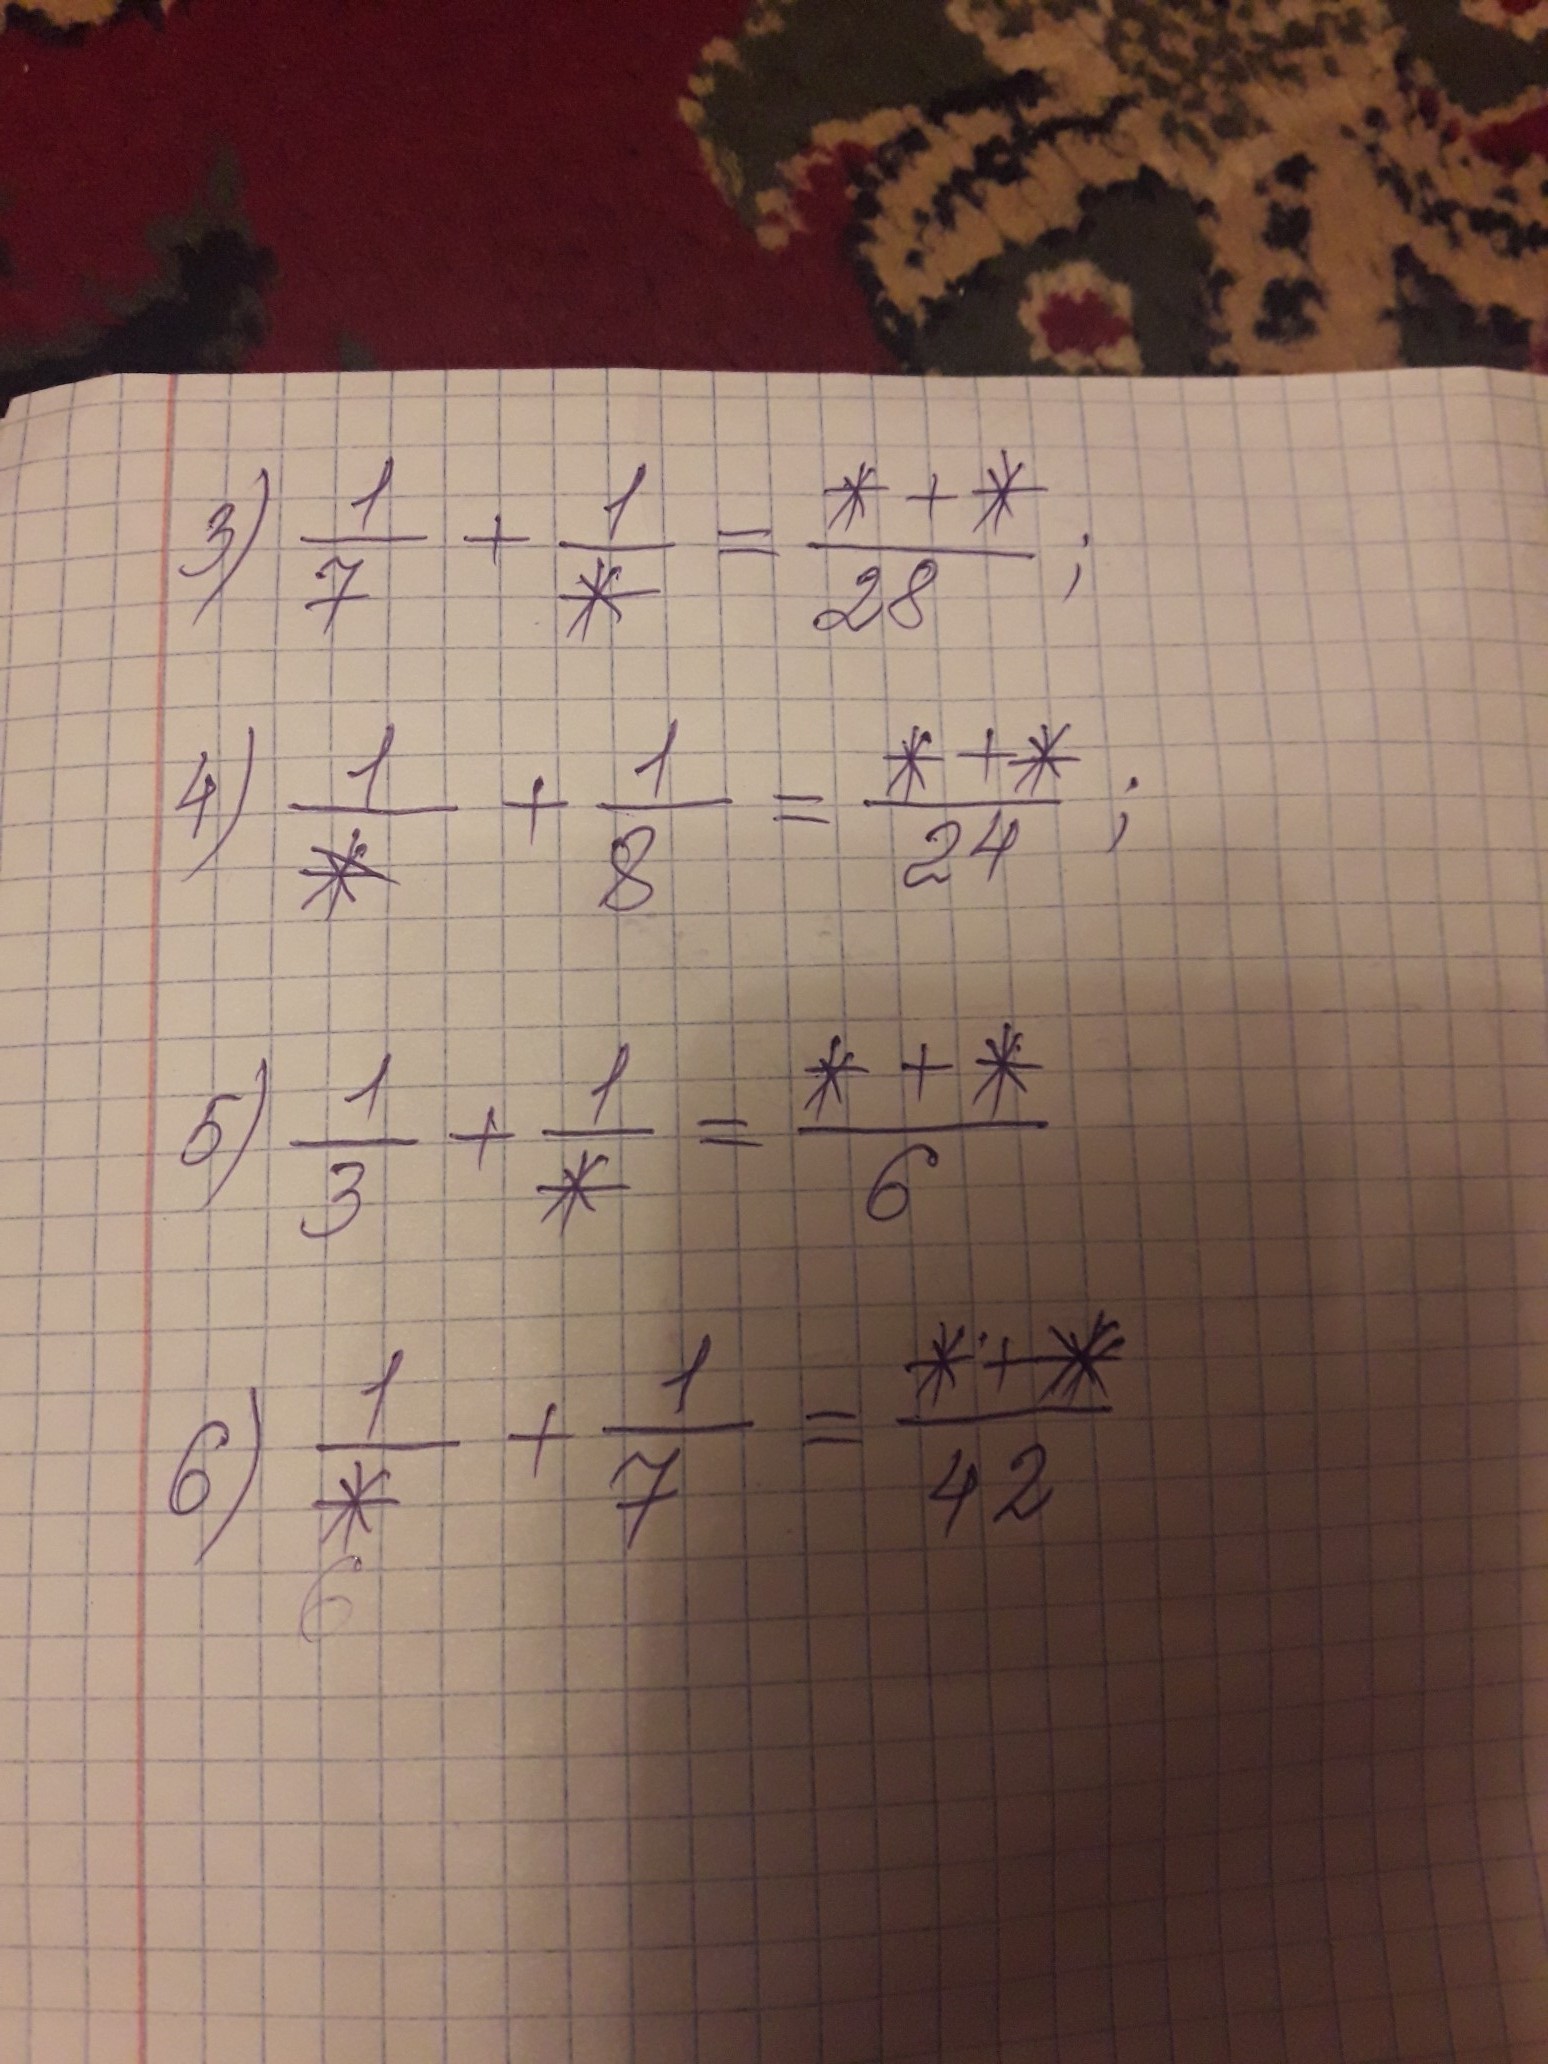 3) 1/7 + 1/* = (* + *)/28 ;
4) 1/* + 1/8 = (* + *)/24 ;
5) 1/3 + 1/* = (* + *)/6
6) 1/* + 1/7 = (* + *)/42
6